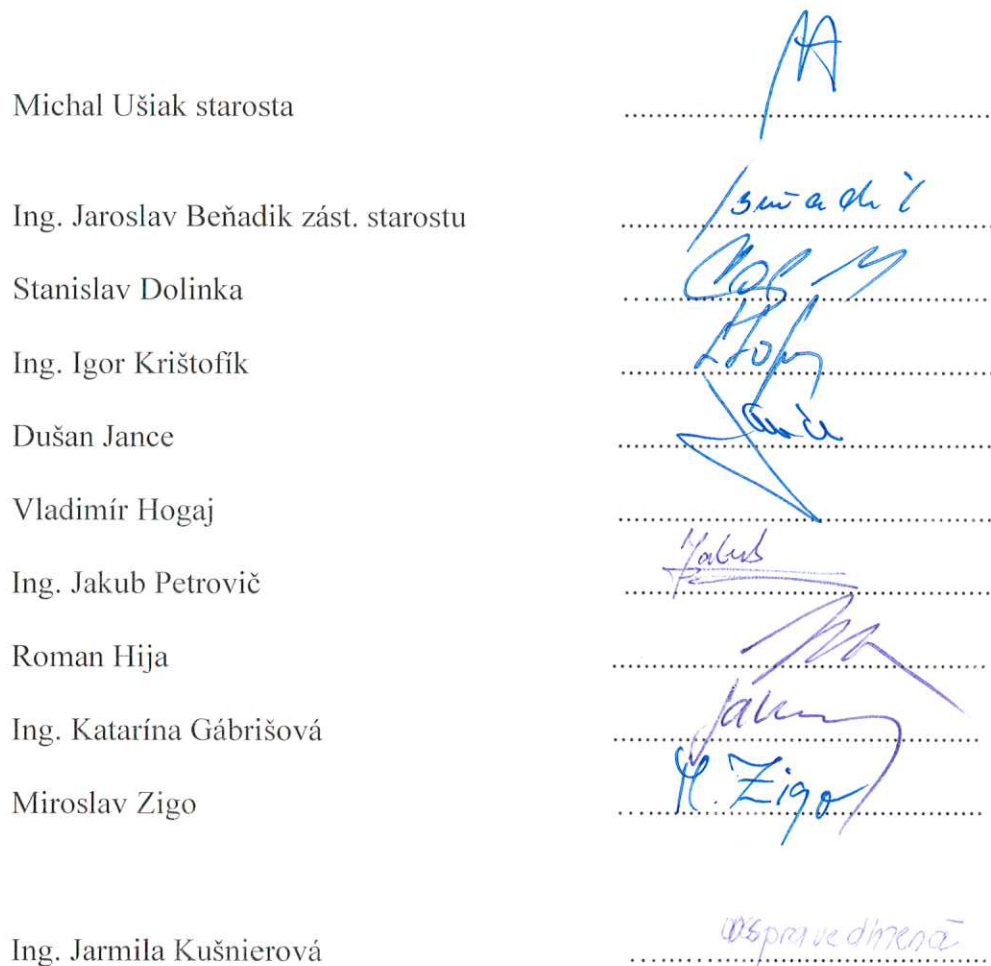 Michal Ušiak starosta
Ing. Jaroslav Beňadik zást. starostu
Stanislav Dolinka
Ing. Igor Krištofík
Dušan Jance
Vladimír Hogaj
Ing. Jakub Petrovič
Jakub
Roman Hija
Ing. Katarína Gábrišová
Miroslav Zigo M. Zigo
Ing. Jarmila Kušnierová ospravedlnená